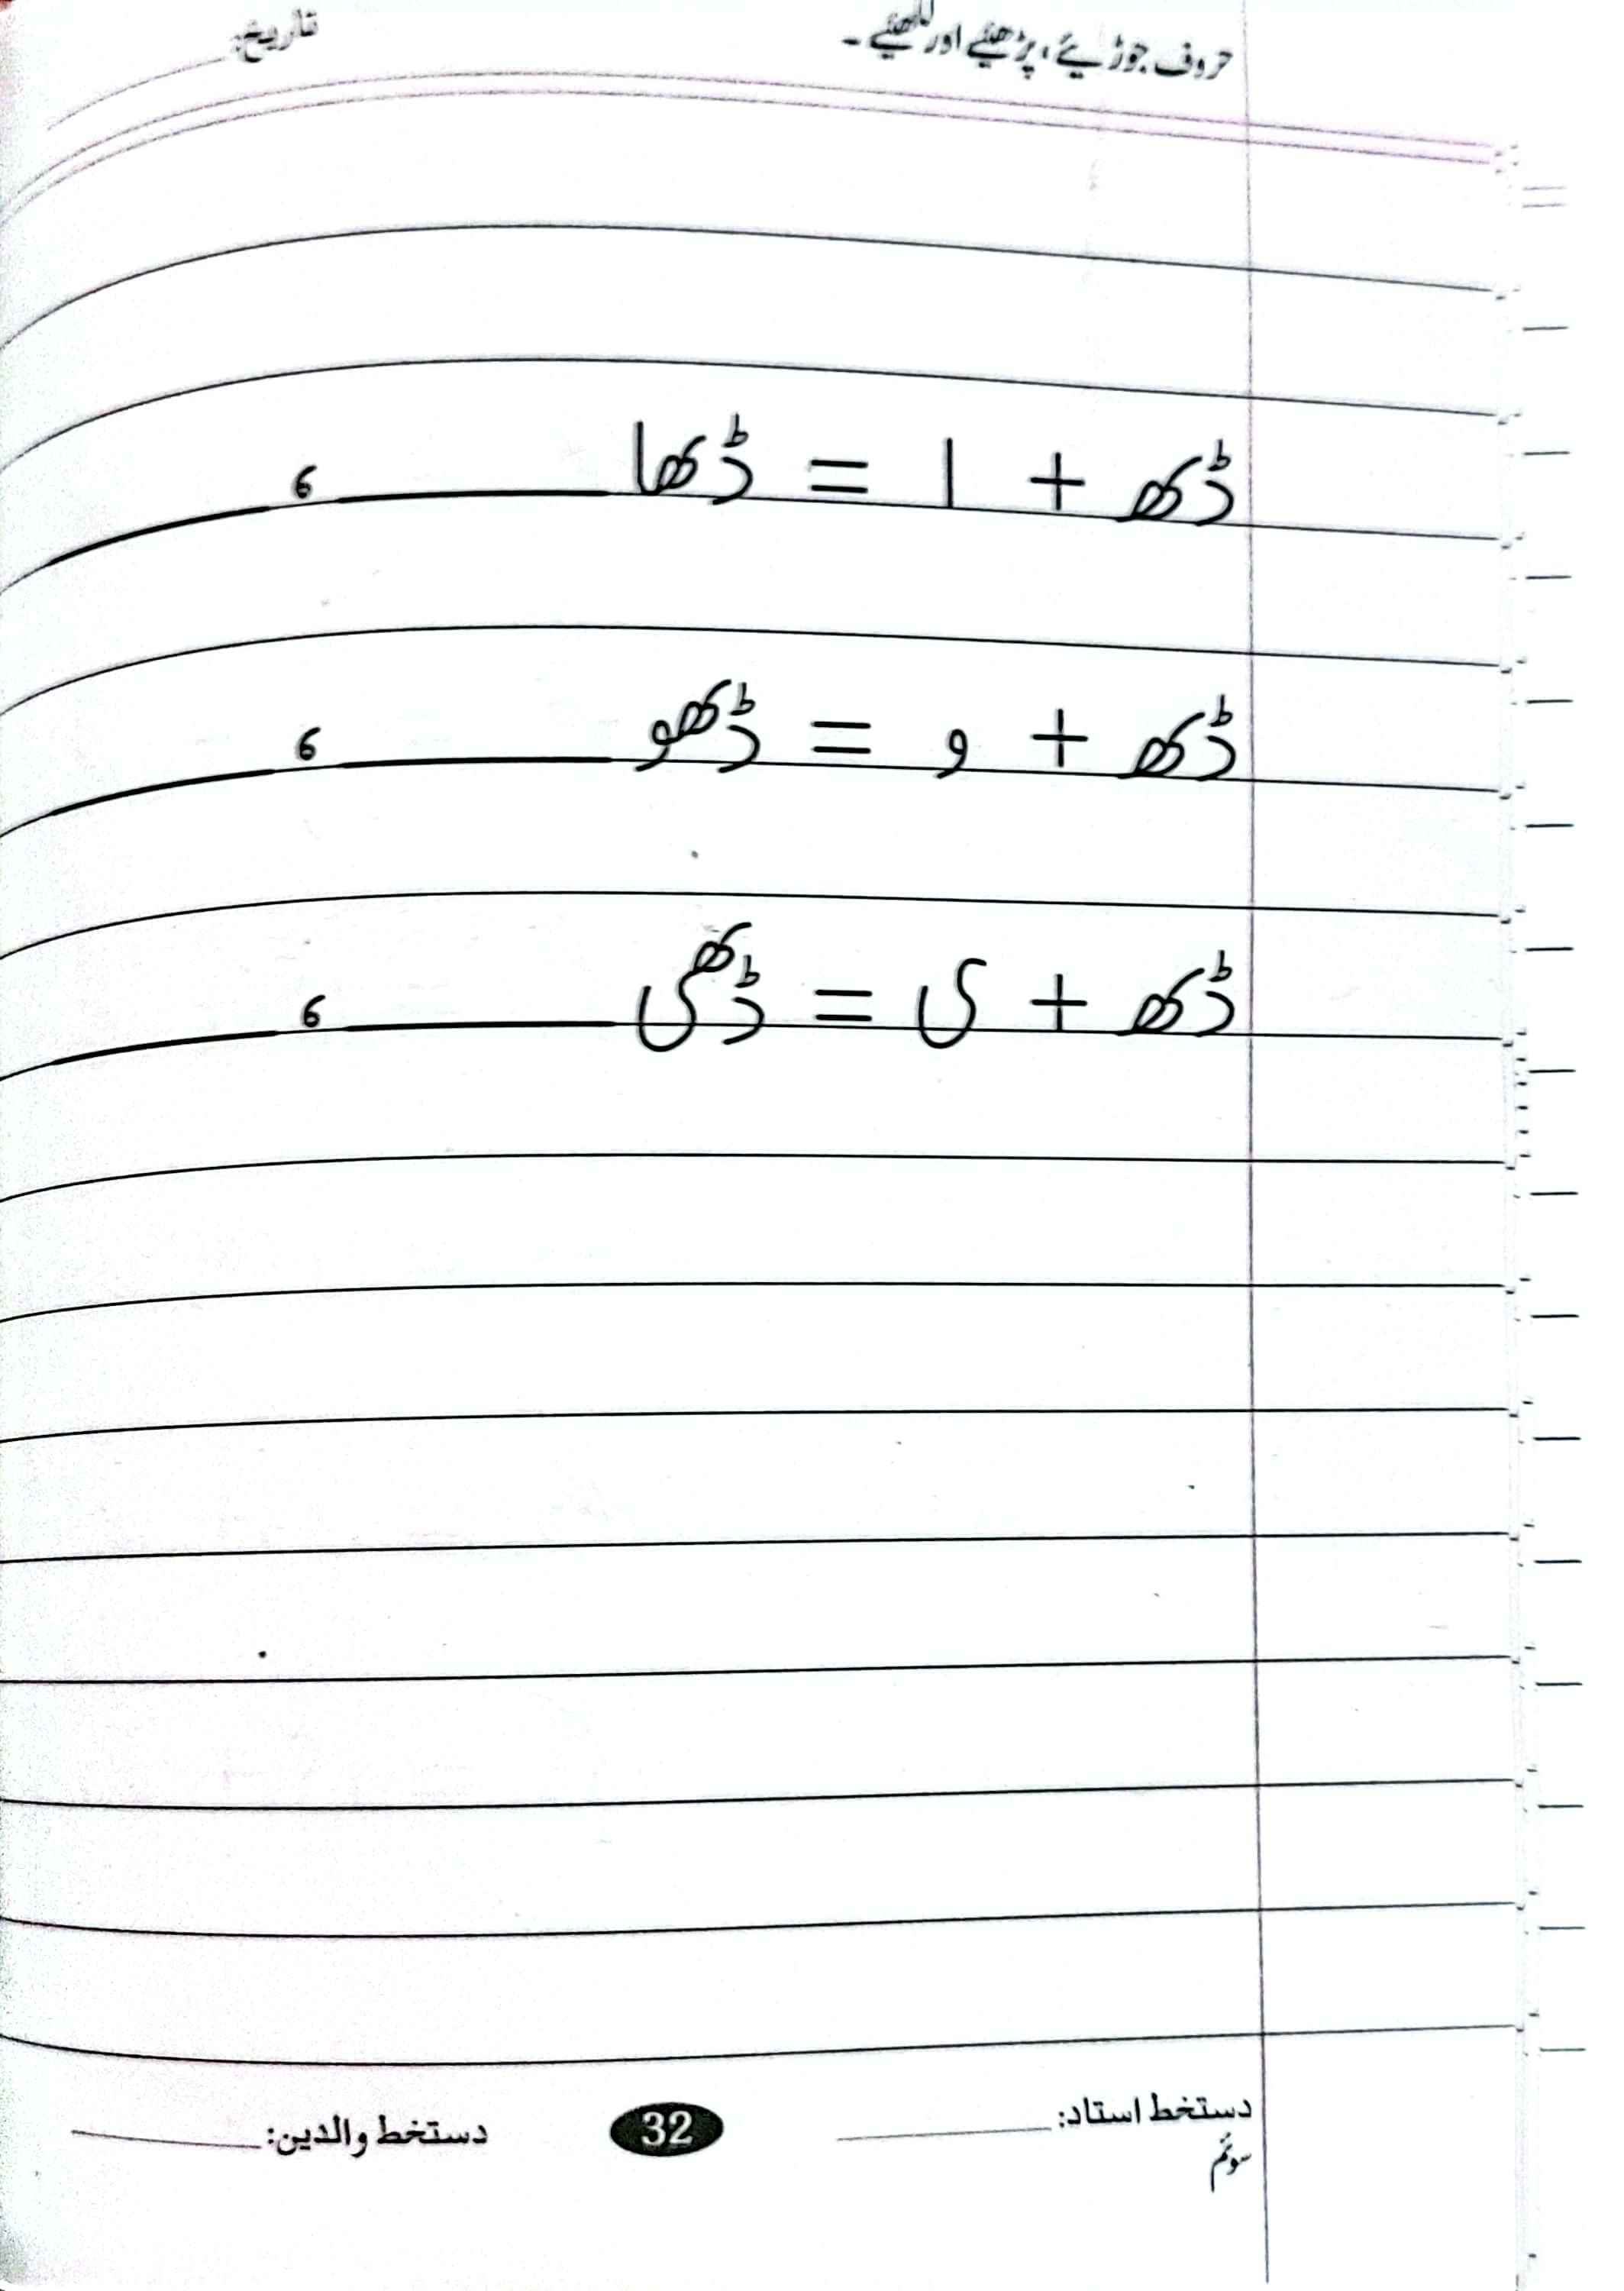 حروف جوڑیئے، پڑھیئے اور لکھیئے۔ تاریخ:
ڈکھ + ا = ڈکھا ______ ، ______
ڈکھ + و = ڈکھو ______ ، ______
ڈکھ + ی = ڈکھی ______ ، ______
دستخط استاد: ______ 32 دستخط والدین: ______
سوئم